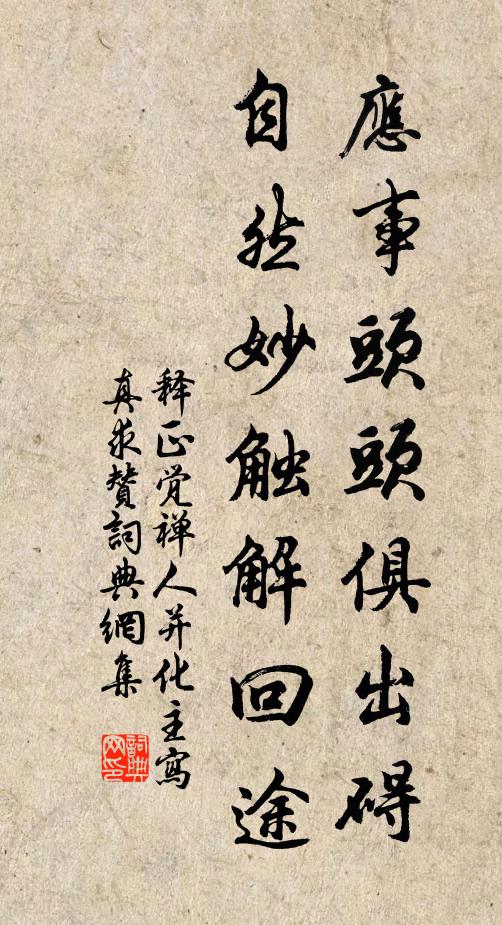 應事頭頭俱出碍
自然妙触解回途
释正觉禅人并化主寫
真求赞詞典網集
詞典网印